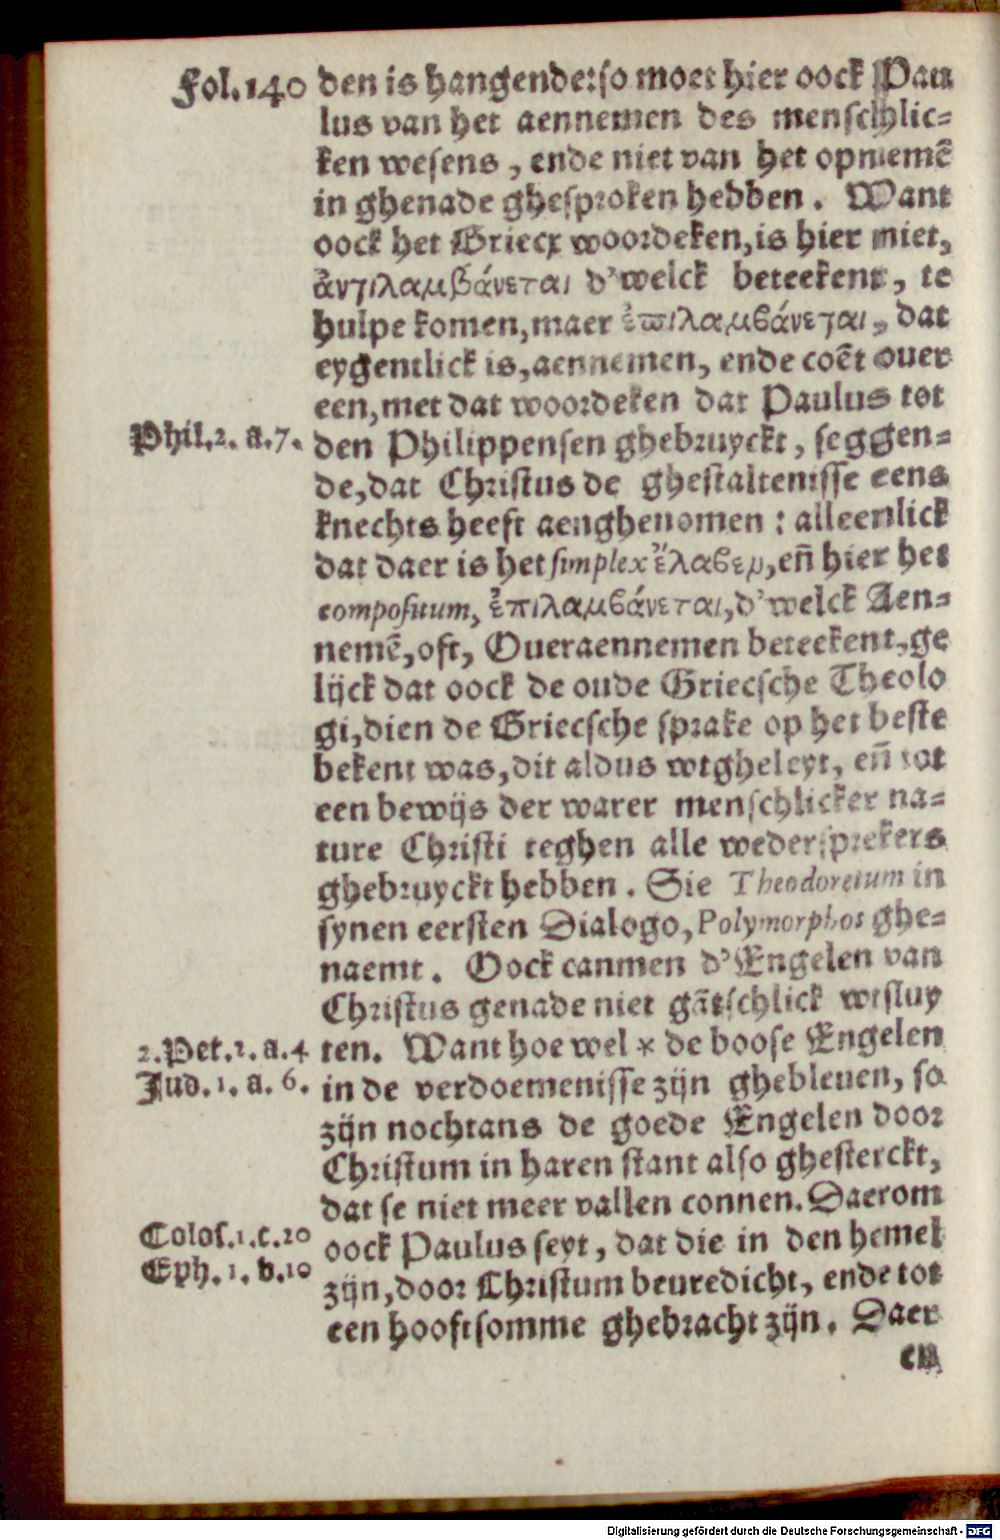 Fol.140 den is hangende:so moet hier oock Pau
lus van het aennemen des menschlic=
ken wesens, ende niet van het opnemẽ
in ghenade ghesproken hebben. Want
oock het Griecx woordeken, is hier niet,
ἀντιλαμβάνεται d'welck beteekent, te
hulpe komen, maer ἐπιλαμβάνεται, dat
eygentlick is, aennemen, ende coẽt ouer
een, met dat woordeken dat Paulus tot
Phil.2. a.7. den Philippensen ghebruyckt, seggen=
de, dat Christus de ghestaltenisse eens
knechts heeft aenghenomen: alleenlick
dat daer is het simplex ἔλαβεν, eñ hier het
compositum, ἐπιλαμβάνεται, d'welck Aen=
nemẽ, oft, Oueraennemen beteekent, ge
lijck dat oock de oude Griecsche Theolo
gi, dien de Griecsche sprake op het beste
bekent was, dit aldus wtgheleyt, eñ tot
een bewijs der warer menschlicker na=
ture Christi teghen alle wedersprekers
ghebruyckt hebben. Sie Theodoretum in
synen eersten Dialogo, Polymorphos ghe=
naemt. Oock canmen d'Engelen van
Christus genade niet gãtschlick wtsluy
2.Pet.2. a.4 ten. Want hoe wel * de boose Engelen
Jud.1. a. 6. in de verdoemenisse zijn ghebleuen, so
zijn nochtans de goede Engelen door
Christum in haren stant also ghesterckt,
dat se niet meer vallen connen. Daerom
Colos.1.c.20 oock Paulus seyt, dat die in den hemel
Eph. 1. b.10 zijn, door Christum beuredicht, ende tot
een hooftsomme ghebracht zijn. Daer
en
Digitalisierung gefördert durch die Deutsche Forschungsgemeinschaft - DFG